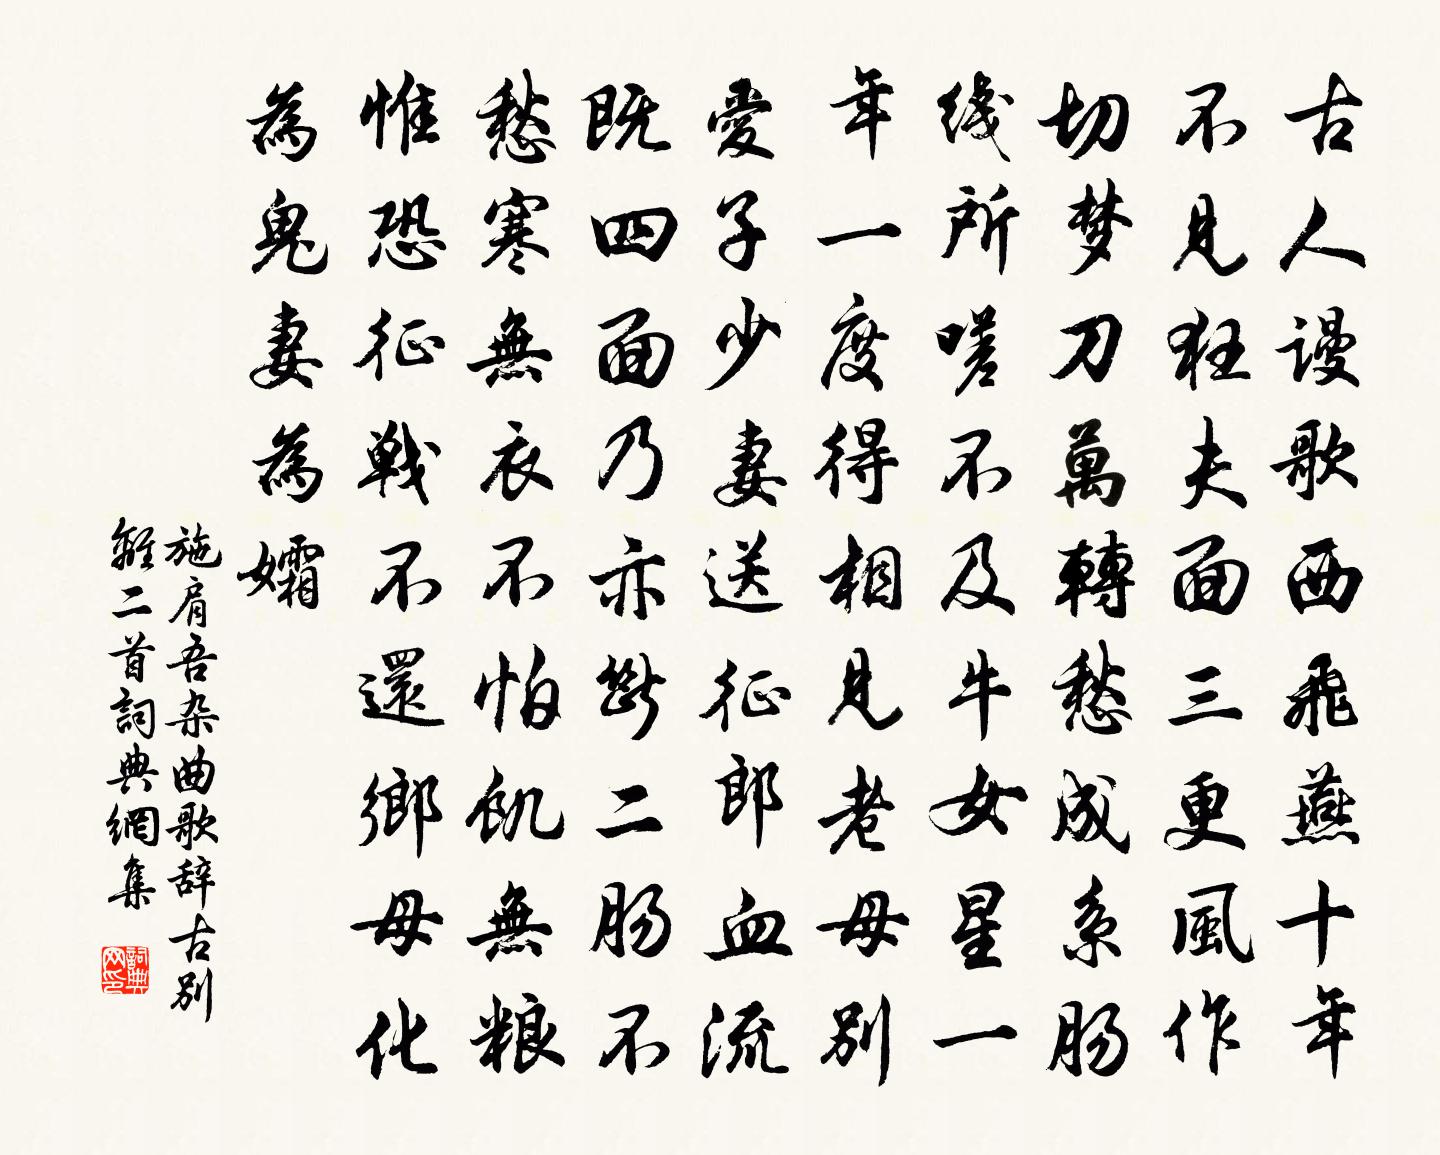 古人谩歌西飛燕十年
不見狂夫面三更風作
切梦刀萬轉愁成系肠
线所嗟不及牛女星一
年一度得相見老母别
愛子少妻送征郎血流
既四面乃亦断二肠不
愁寒無衣不怕飢無粮
惟恐征戰不還鄉母化
為鬼妻為孀
施肩吾杂曲歌辞古别
離二首詞典網集
詞典网印